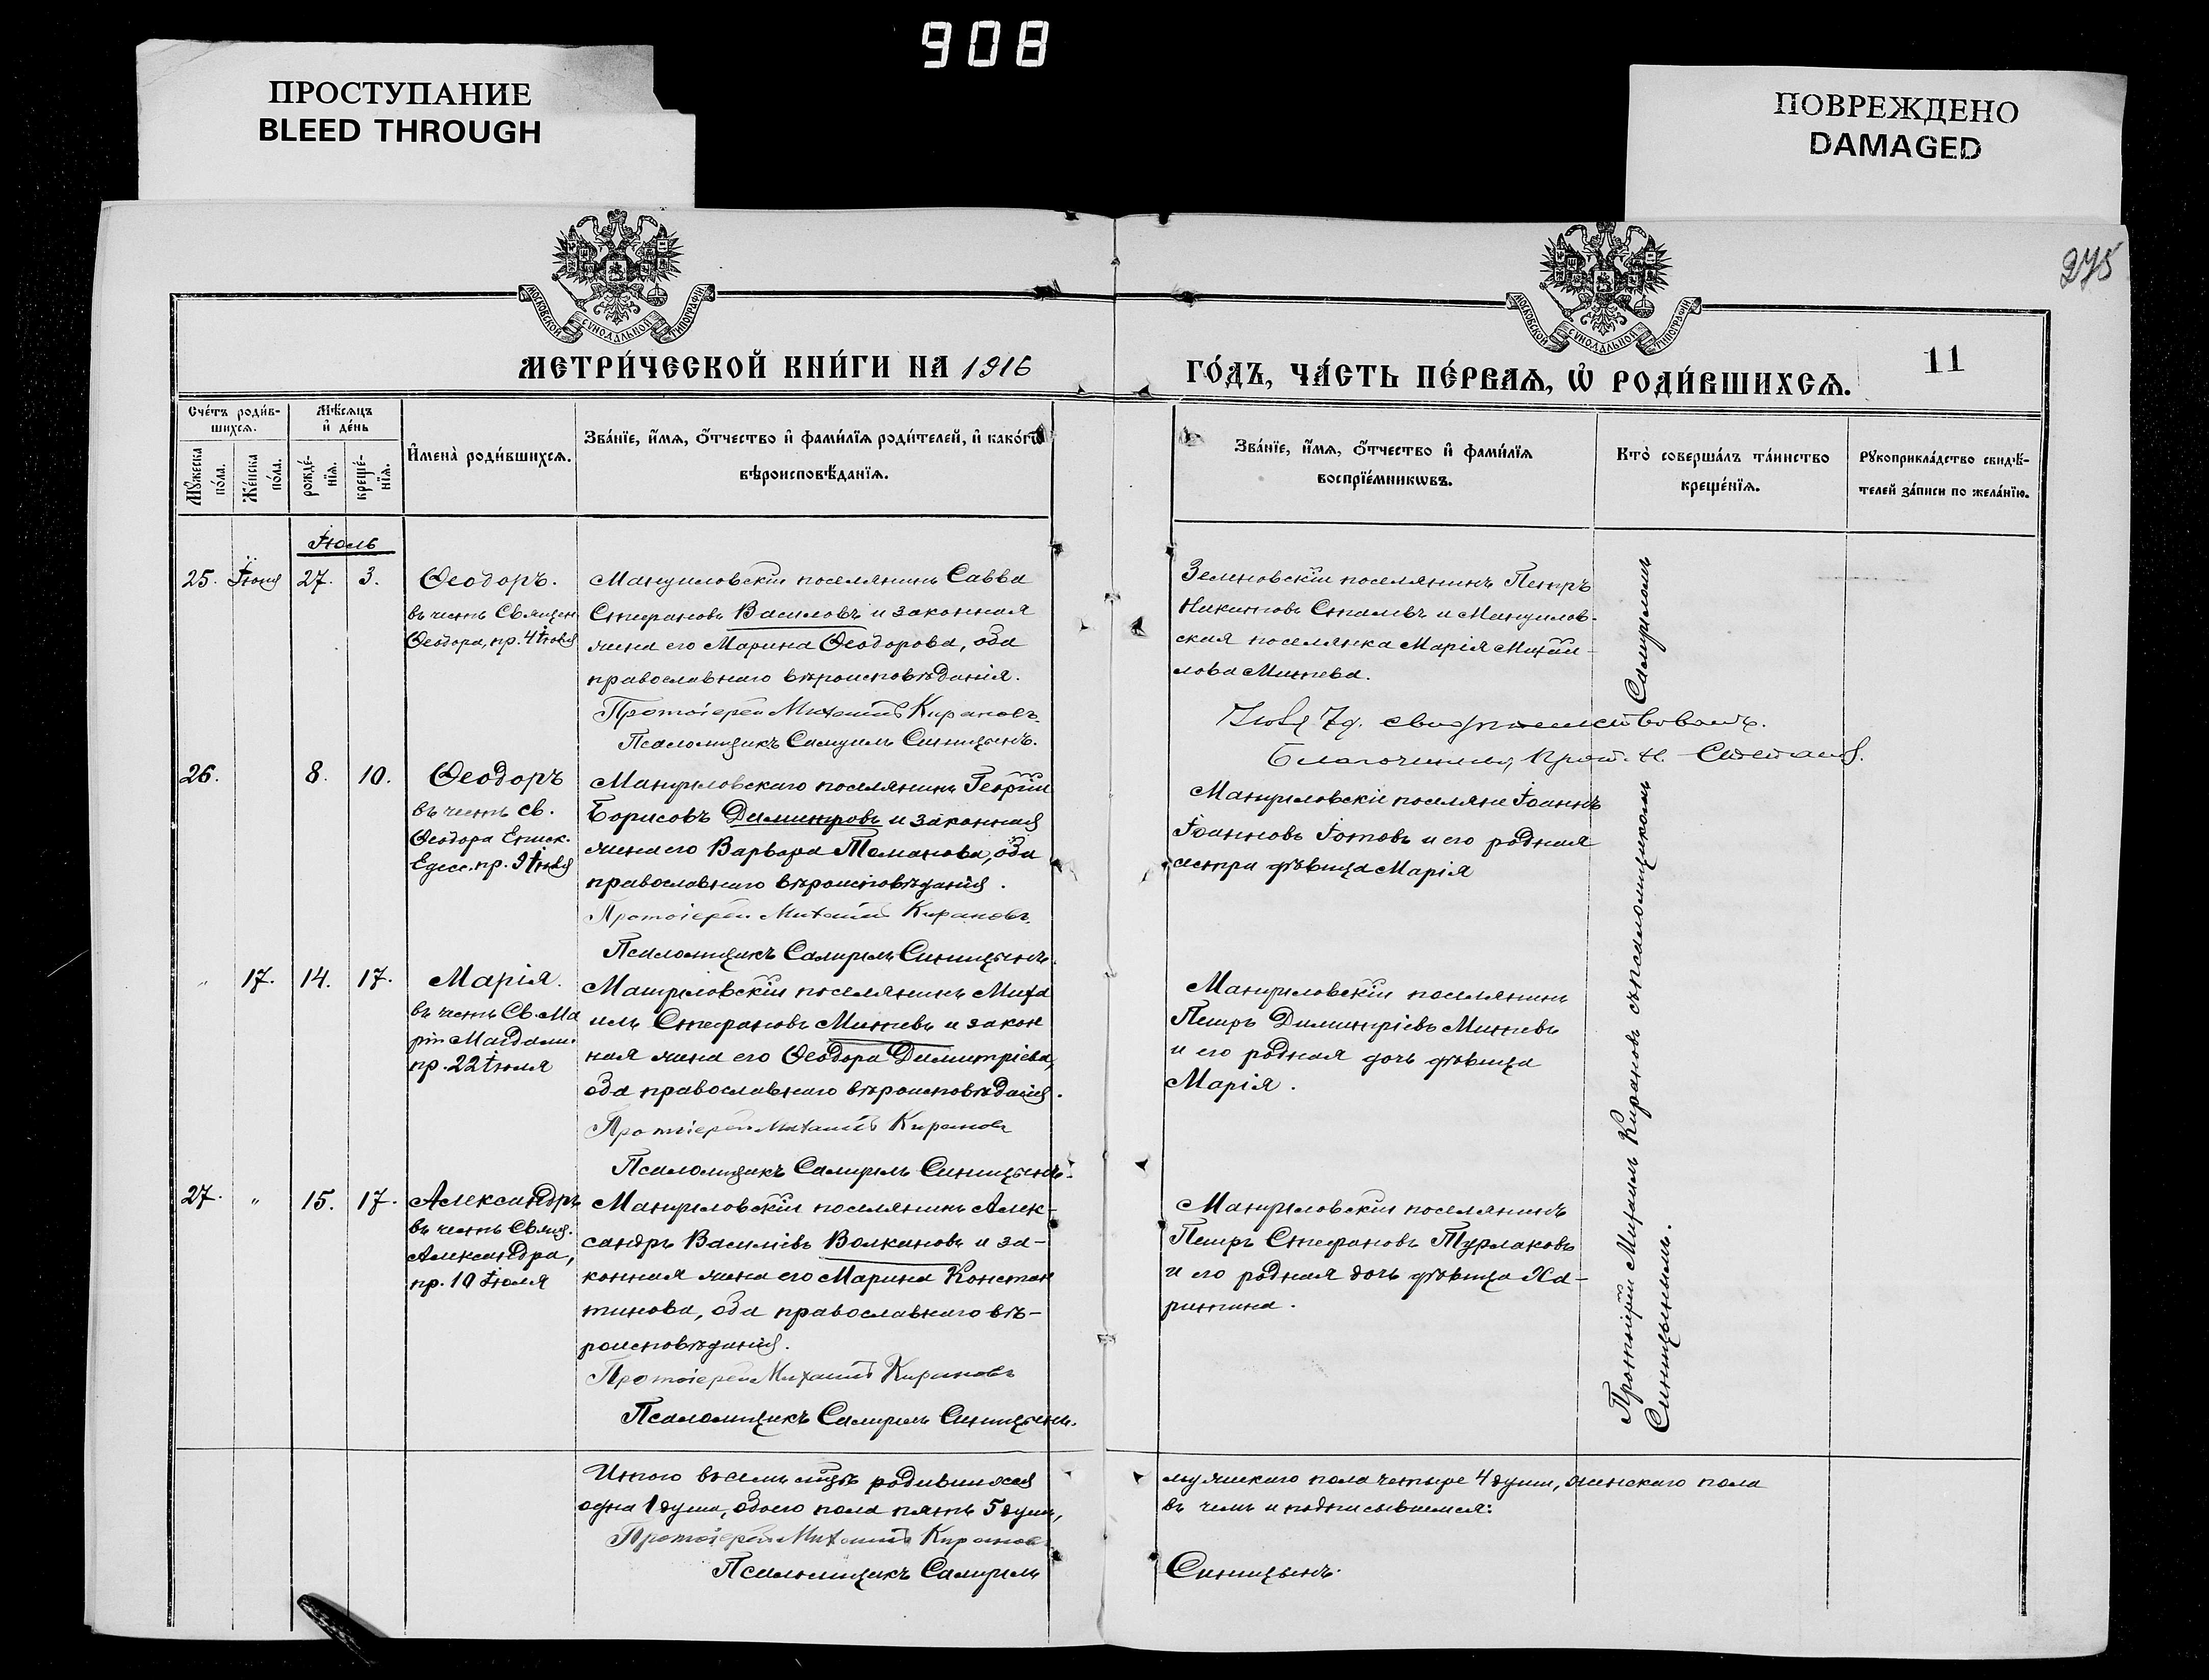 908
ПРОСТУПАНИЕ
BLEED THROUGH
ПОВРЕЖДЕНО
DAMAGED
275
МОСКОВСКОЙ СѴНОДАЛЬНОЙ ТИПОГРАФІИ
МОСКОВСКОЙ СѴНОДАЛЬНОЙ ТИПОГРАФІИ
МЕТРИ́ЧЕСКОЙ КНИ́ГИ НА 1916
ГО́ДЪ, ЧА́СТЬ ПЕ́РВАѦ, Ѡ҆ РОДИ́ВШИХСѦ.
11
Сче́тъ роди́в-
шихсѧ.
Мꙋ́жеска по́ла.
Же́нска по́ла.
Мѣ́сѧцъ
и҆ де́нь
рожде́-
нїѧ.
креще́-
нїѧ.
И҆мена̀ роди́вшихсѧ.
Зва́нїе, и҆́мѧ, ѻ҆́тчество и҆ фами́лїѧ роди́телей, и҆ како́гѡ
вѣроисповѣ́данїѧ.
Зва́нїе, и҆́мѧ, ѻ҆́тчество и҆ фами́лїѧ
воспрїе́мникѡвъ.
Кто̀ соверша́лъ та́инство
креще́нїѧ.
Рꙋкоприкла́дство свидѣ́-
телей за́писи по жела́нїю.
Іюль
25. Іюня 27. 3.
Ѳеодоръ.
въ честь Священ.
Ѳеодора, пр. 4 Іюля
Мануиловскій поселянинъ Савва
Стефановъ Василовъ и законная
жена его Марина Ѳеодорова, оба
православнаго вѣроисповѣданія.
Протоіерей Михаилъ Кирановъ.
Псаломщикъ Самуилъ Синицынъ.
Петръ
и Мануилов-
ская поселянка Марія Михаи-
лова Минчева.
7 д. свидѣтельствовалъ.
Благочинный, Прот. Н.
26. 8. 10.
Ѳеодоръ
въ честь св.
Ѳеодора Еписк.
Едес. пр. 9 Іюля
Мануиловскаго поселянинъ Георгій
Борисовъ Димитровъ и законная
жена его Варвара Томанова, оба
православнаго вѣроисповѣданія.
Протоіерей Михаилъ Кирановъ.
Псаломщикъ Самуилъ Синицынъ.
Мануиловскіе поселяне Іоаннъ
Іоанновъ Іотовъ и его родная
сестра дѣвица Марія
" 17. 14. 17.
Марія.
въ честь Св. Ма
ріи Магдали.
пр. 22 Іюля
Мануиловскій поселянинъ Миха
илъ Стефановъ Минчевъ и закон
ная жена его Ѳеодора Димитріева,
оба православнаго вѣроисповѣданія.
Протоіерей Михаилъ Кирановъ
Псаломщикъ Самуилъ Синицынъ.
Мануиловскій поселянинъ
Петръ Димитріевъ Минчевъ
и его родная дочь дѣвица
Марія.
27. " 15. 17.
Александръ
въ честь Свящ.
Александра,
пр. 10 Іюля
Мануиловскій поселянинъ Алек-
сандръ Василіевъ Волкановъ и за-
конная жена его Марина Констан
тинова, оба православнаго вѣ-
роисповѣданія.
Протоіерей Михаилъ Кирановъ
Псаломщикъ Самуилъ Синицынъ.
Мануиловскій поселянинъ
Петръ Стефановъ Турлаковъ
и его родная дочь дѣвица Ха-
ритина.
Протоіерей Михаилъ Кирановъ съ псаломщикомъ Самуиломъ
Синицынымъ.
Итого въ семъ мцѣ родившихся
мужескаго пола четыре 4 души, женскаго пола
одна 1 душа, обоего пола пять 5 душъ,
въ чемъ и подписываемся:
Протоіерей Михаилъ Кирановъ
Псаломщикъ Самуилъ
Синицынъ.